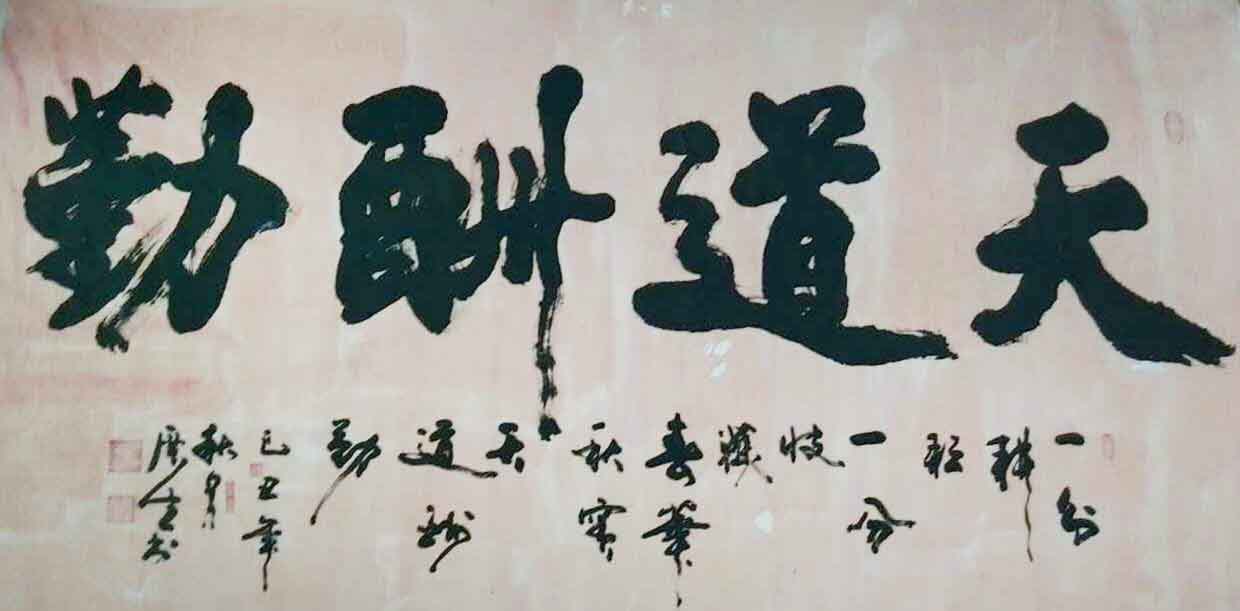 天道酬勤
一分
耕
耘
一分
收
穫
春華
秋實
天
道酬
勤
己丑年
秋月
生书